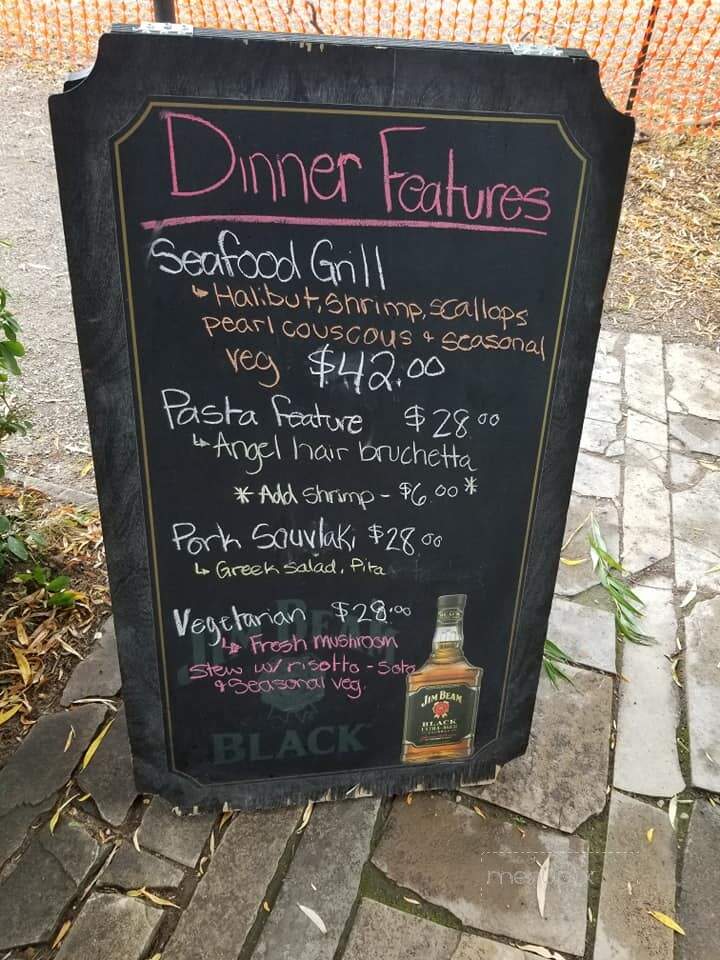 Dinner Features
Seafood Grill
↳ Halibut, shrimp, scallops
pearl couscous + seasonal
veg $42.00
Pasta Feature $28.00
↳ Angel hair bruchetta
* Add shrimp - $6.00 *
Pork Souvlaki $28.00
↳ Greek salad, Pita
Vegetarian $28.00
↳ Fresh mushroom
Stew w/ risotto -
& Seasonal veg.
JIM BEAM
BLACK
JIM BEAM
BLACK
EXTRA-AGED